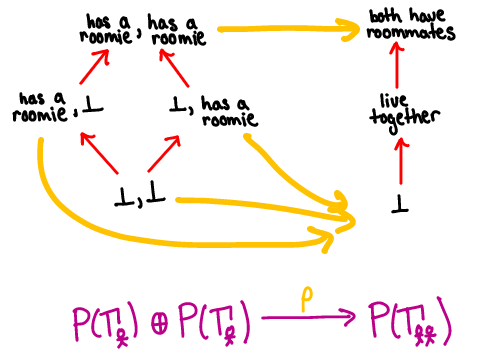 has a roomie, has a roomie
both have roommates
has a roomie, ⊥
⊥, has a roomie
live together
⊥, ⊥
⊥
ρ
P(T_웃) ⊕ P(T_웃) ⟶ P(T_웃웃)